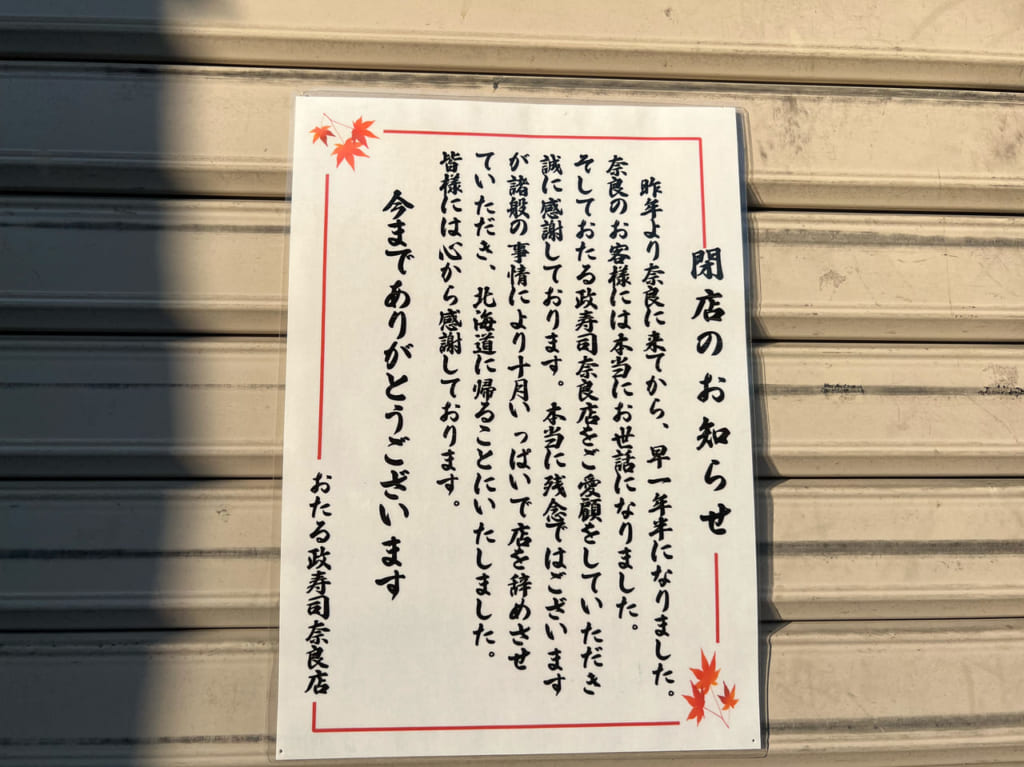 閉店のお知らせ
昨年より奈良に来てから、早一年半になりました。
奈良のお客様には本当にお世話になりました。
そしておたる政寿司奈良店をご愛顧をしていただき
誠に感謝しております。本当に残念ではございます
が諸般の事情により十月いっぱいで店を辞めさせ
ていただき、北海道に帰ることにいたしました。
皆様には心から感謝しております。
今までありがとうございます
おたる政寿司奈良店